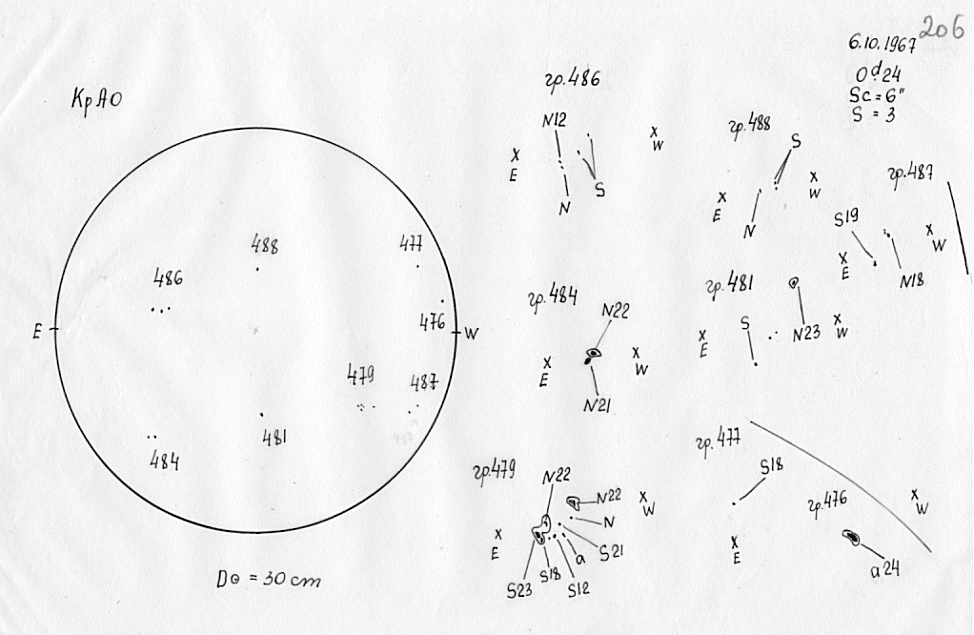 206
6.10.1967
0ᵈ24
Sc = 6"
S = 3
КрАО
E
W
488
477
486
476
479
487
481
484
D⊙ = 30 cm
гр.486
N12
x
E
x
W
N
S
гр.488
S
x
E
x
W
N
гр.487
S19
x
E
x
W
N18
гр.484
N22
x
E
x
W
N21
гр.481
S
x
E
N23
x
W
гр.479
N22
N22
x
W
N
x
E
S21
a
S23
S18
S12
гр.477
S18
x
E
гр.476
x
W
a24